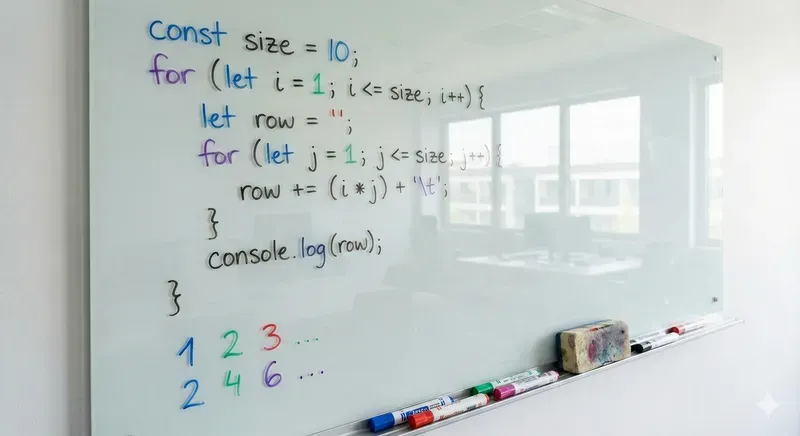 const size = 10;
for (let i = 1; i <= size; i++) {
let row = '';
for (let j = 1; j <= size; j++) {
row += (i * j) + '\t';
}
console.log(row);
}
1 2 3 ...
2 4 6 ...